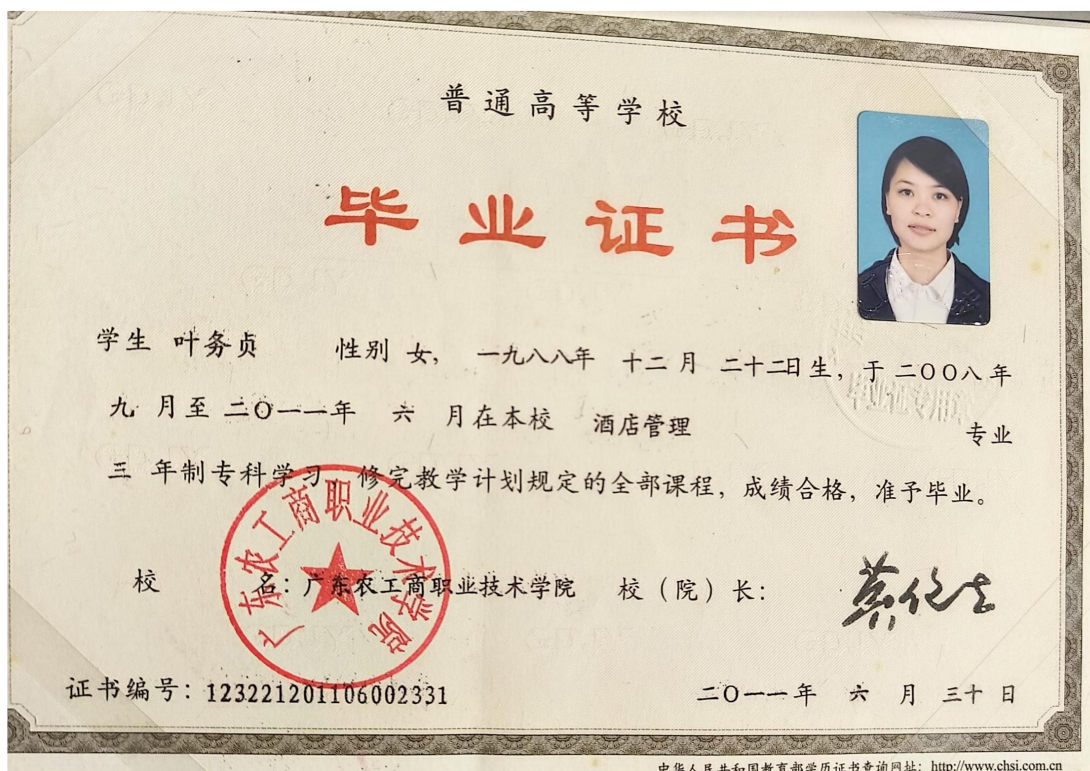 普通高等学校
毕业证书
学生 叶务贞 性别 女， 一九八八年 十二月 二十二日生，于 二〇〇八年
九 月至 二〇一一年 六 月在本校 酒店管理 专业
三 年制专科学习，修完教学计划规定的全部课程，成绩合格，准予毕业。
校 名：广东农工商职业技术学院 校（院）长：
广东农工商职业技术学院
证书编号：123221201106002331 二〇一一年 六 月 三十 日
中华人民共和国教育部学历证书查询网址：http://www.chsi.com.cn